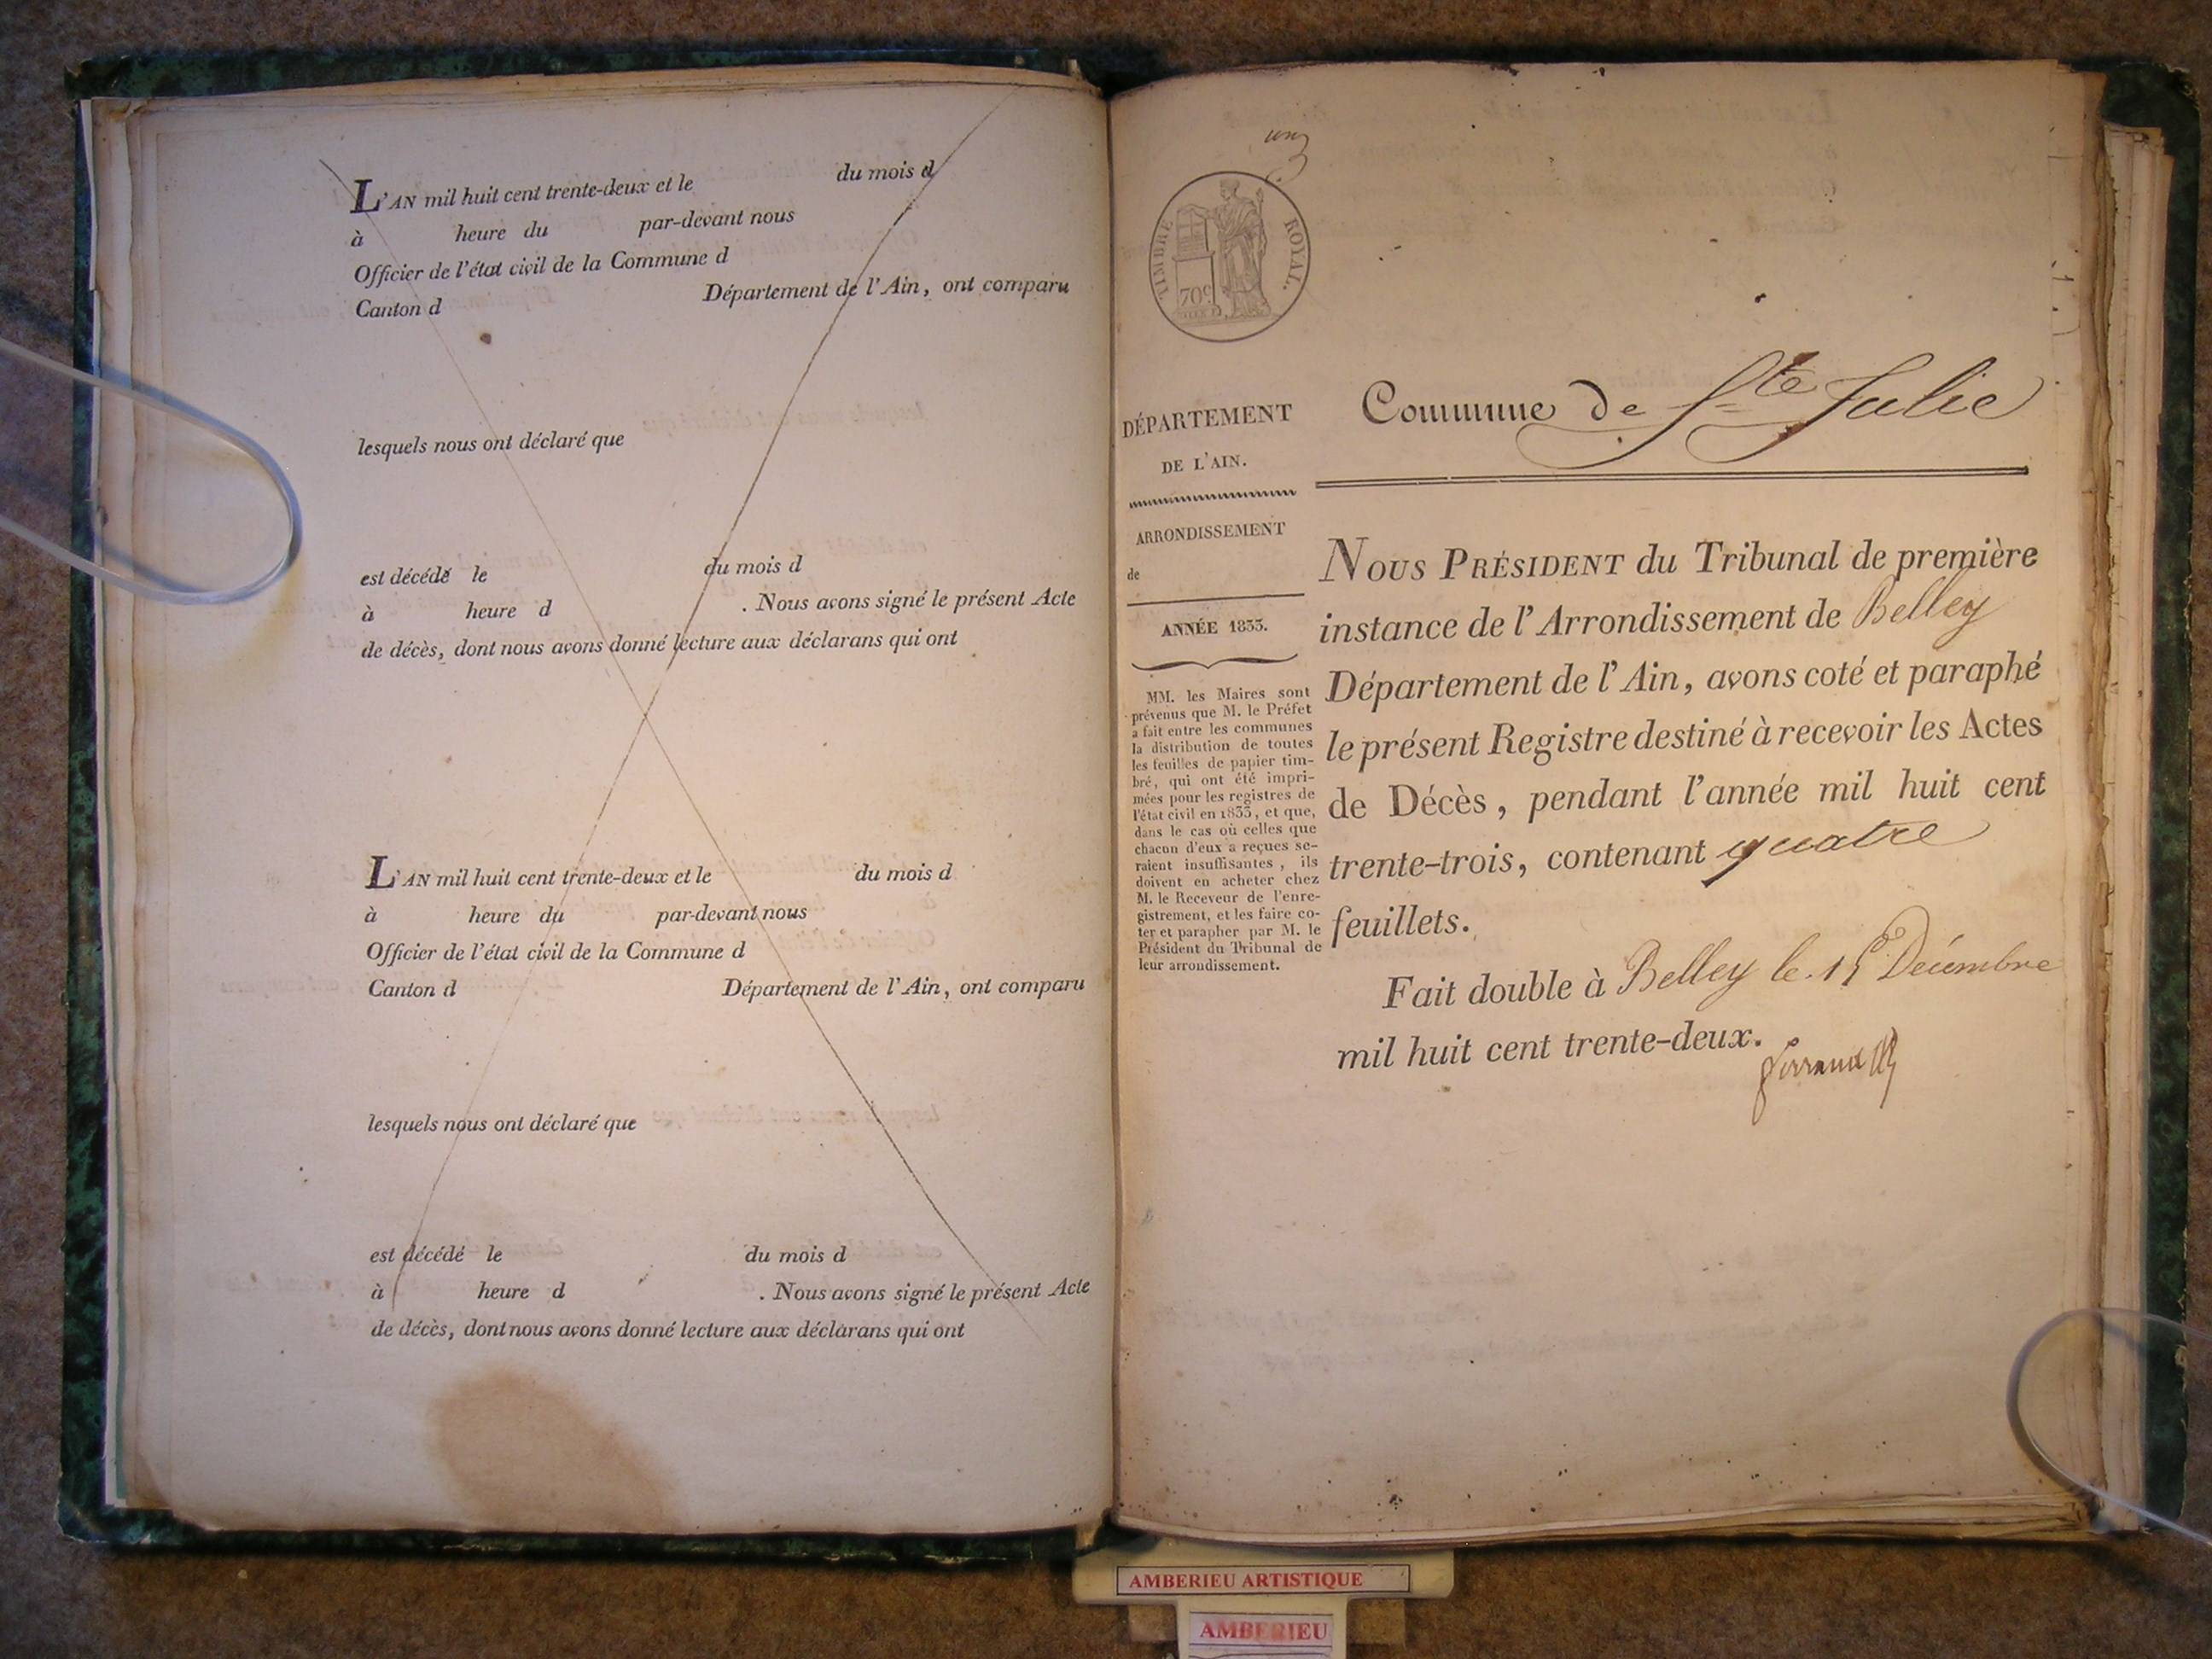 L'AN mil huit cent trente-deux et le du mois d
à heure du par-devant nous
Officier de l'état civil de la Commune d
Canton d Département de l'Ain, ont comparu
lesquels nous ont déclaré que
est décédé le du mois d
à heure d . Nous avons signé le présent Acte
de décès, dont nous avons donné lecture aux déclarans qui ont
L'AN mil huit cent trente-deux et le du mois d
à heure du par-devant nous
Officier de l'état civil de la Commune d
Canton d Département de l'Ain, ont comparu
lesquels nous ont déclaré que
est décédé le du mois d
à heure d . Nous avons signé le présent Acte
de décès, dont nous avons donné lecture aux déclarans qui ont
un
TIMBRE ROYAL.
70c
DÉPARTEMENT
DE L'AIN.
ARRONDISSEMENT
de
ANNÉE 1833.
MM. les Maires sont
prévenus que M. le Préfet
a fait entre les communes
la distribution de toutes
les feuilles de papier tim-
bré, qui ont été impri-
mées pour les registres de
l'état civil en 1833, et que,
dans le cas où celles que
chacun d'eux a reçues se-
raient insuffisantes, ils
doivent en acheter chez
M. le Receveur de l'enre-
gistrement, et les faire co-
ter et parapher par M. le
Président du Tribunal de
leur arrondissement.
Commune de Ste Julie
NOUS PRÉSIDENT du Tribunal de première
instance de l'Arrondissement de Belley
Département de l'Ain, avons coté et paraphé
le présent Registre destiné à recevoir les Actes
de Décès, pendant l'année mil huit cent
trente-trois, contenant quatre
feuillets.
Fait double à Belley le 15 Décembre
mil huit cent trente-deux.
AMBERIEU ARTISTIQUE
AMBERIEU